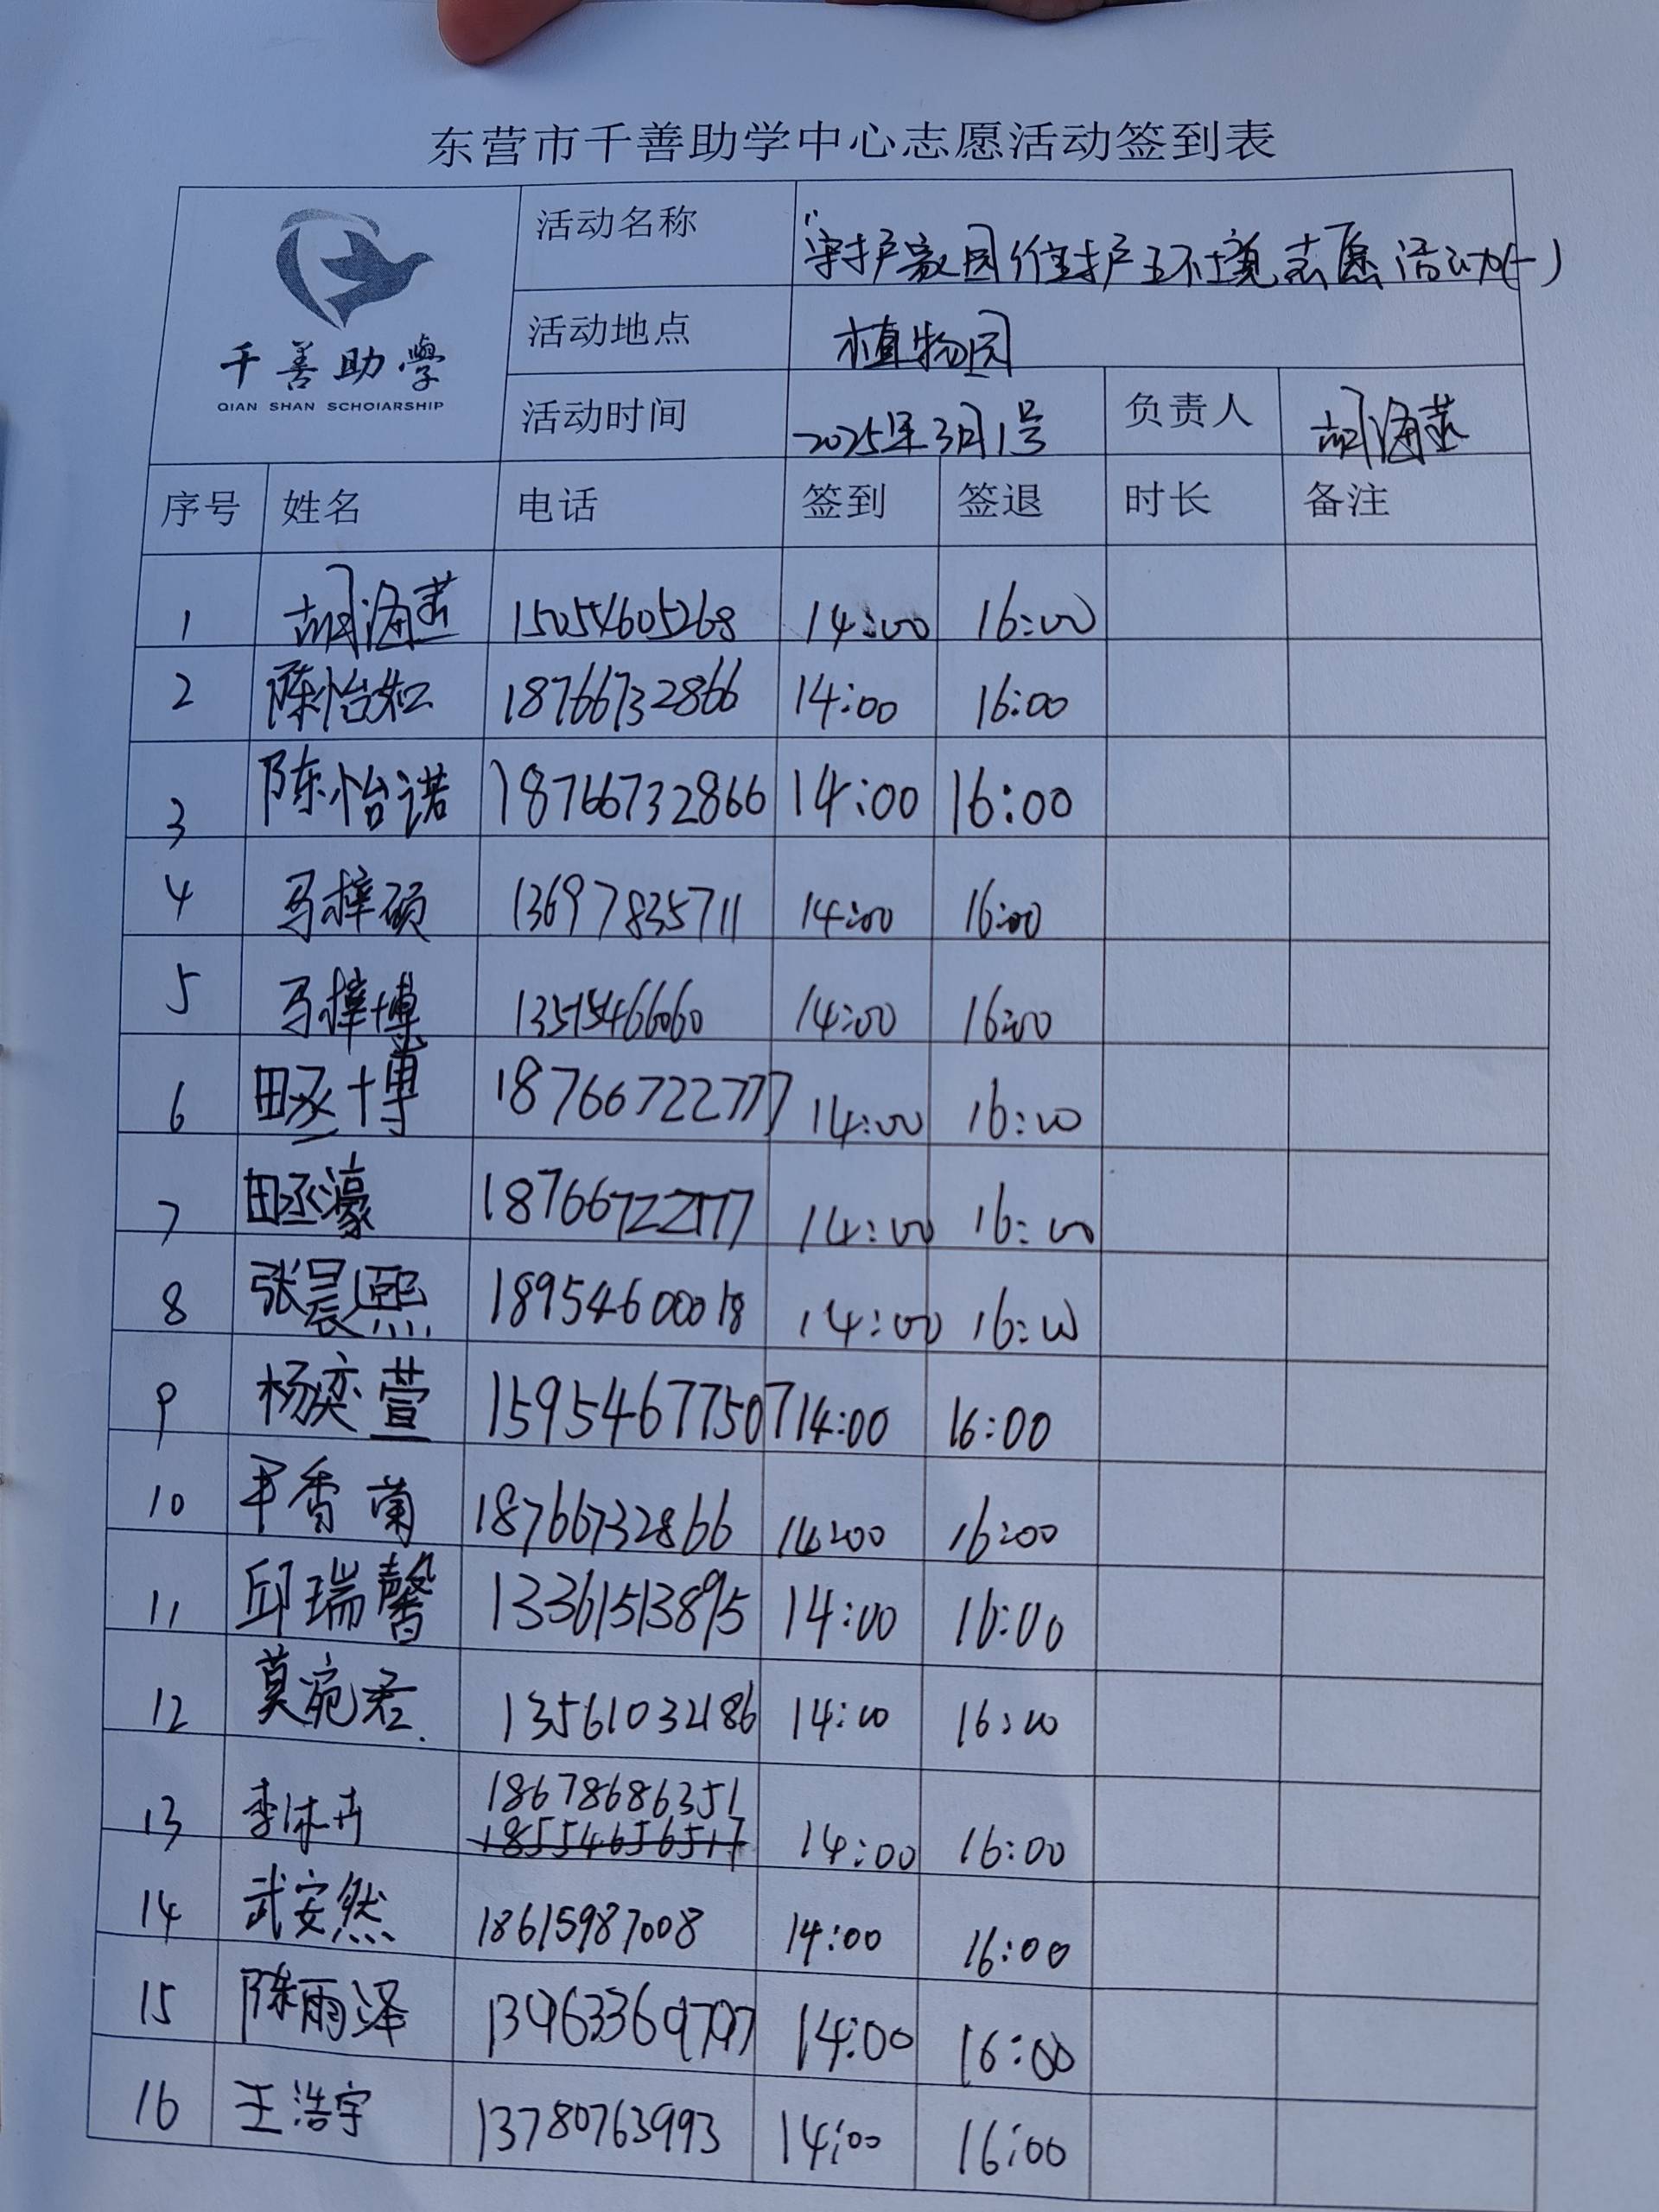 东营市千善助学中心志愿活动签到表
千善助學
QIAN SHAN SCHOIARSHIP
活动名称 "守护家园 维护环境志愿活动(一)
活动地点 植物园
活动时间 2025年3月1号 负责人 胡海燕
序号 姓名 电话 签到 签退 时长 备注
1 胡海燕 15054605268 14:00 16:00
2 陈怡如 18766732866 14:00 16:00
3 陈怡诺 18766732866 14:00 16:00
4 马梓硕 13697835711 14:00 16:00
5 马梓博 13515466060 14:00 16:00
6 田丞博 18766722777 14:00 16:00
7 田丞濠 18766722777 14:00 16:00
8 张晨熙 18954600018 14:00 16:00
9 杨奕萱 15954677507 14:00 16:00
10 香菊 18766732866 14:00 16:00
11 邱瑞馨 13361513895 14:00 16:00
12 莫宛君 13561032186 14:00 16:00
13 李沐卉 18678686351 14:00 16:00
18554656517
14 武安然 18615987008 14:00 16:00
15 陈雨泽 13963369797 14:00 16:00
16 王浩宇 13780763993 14:00 16:00